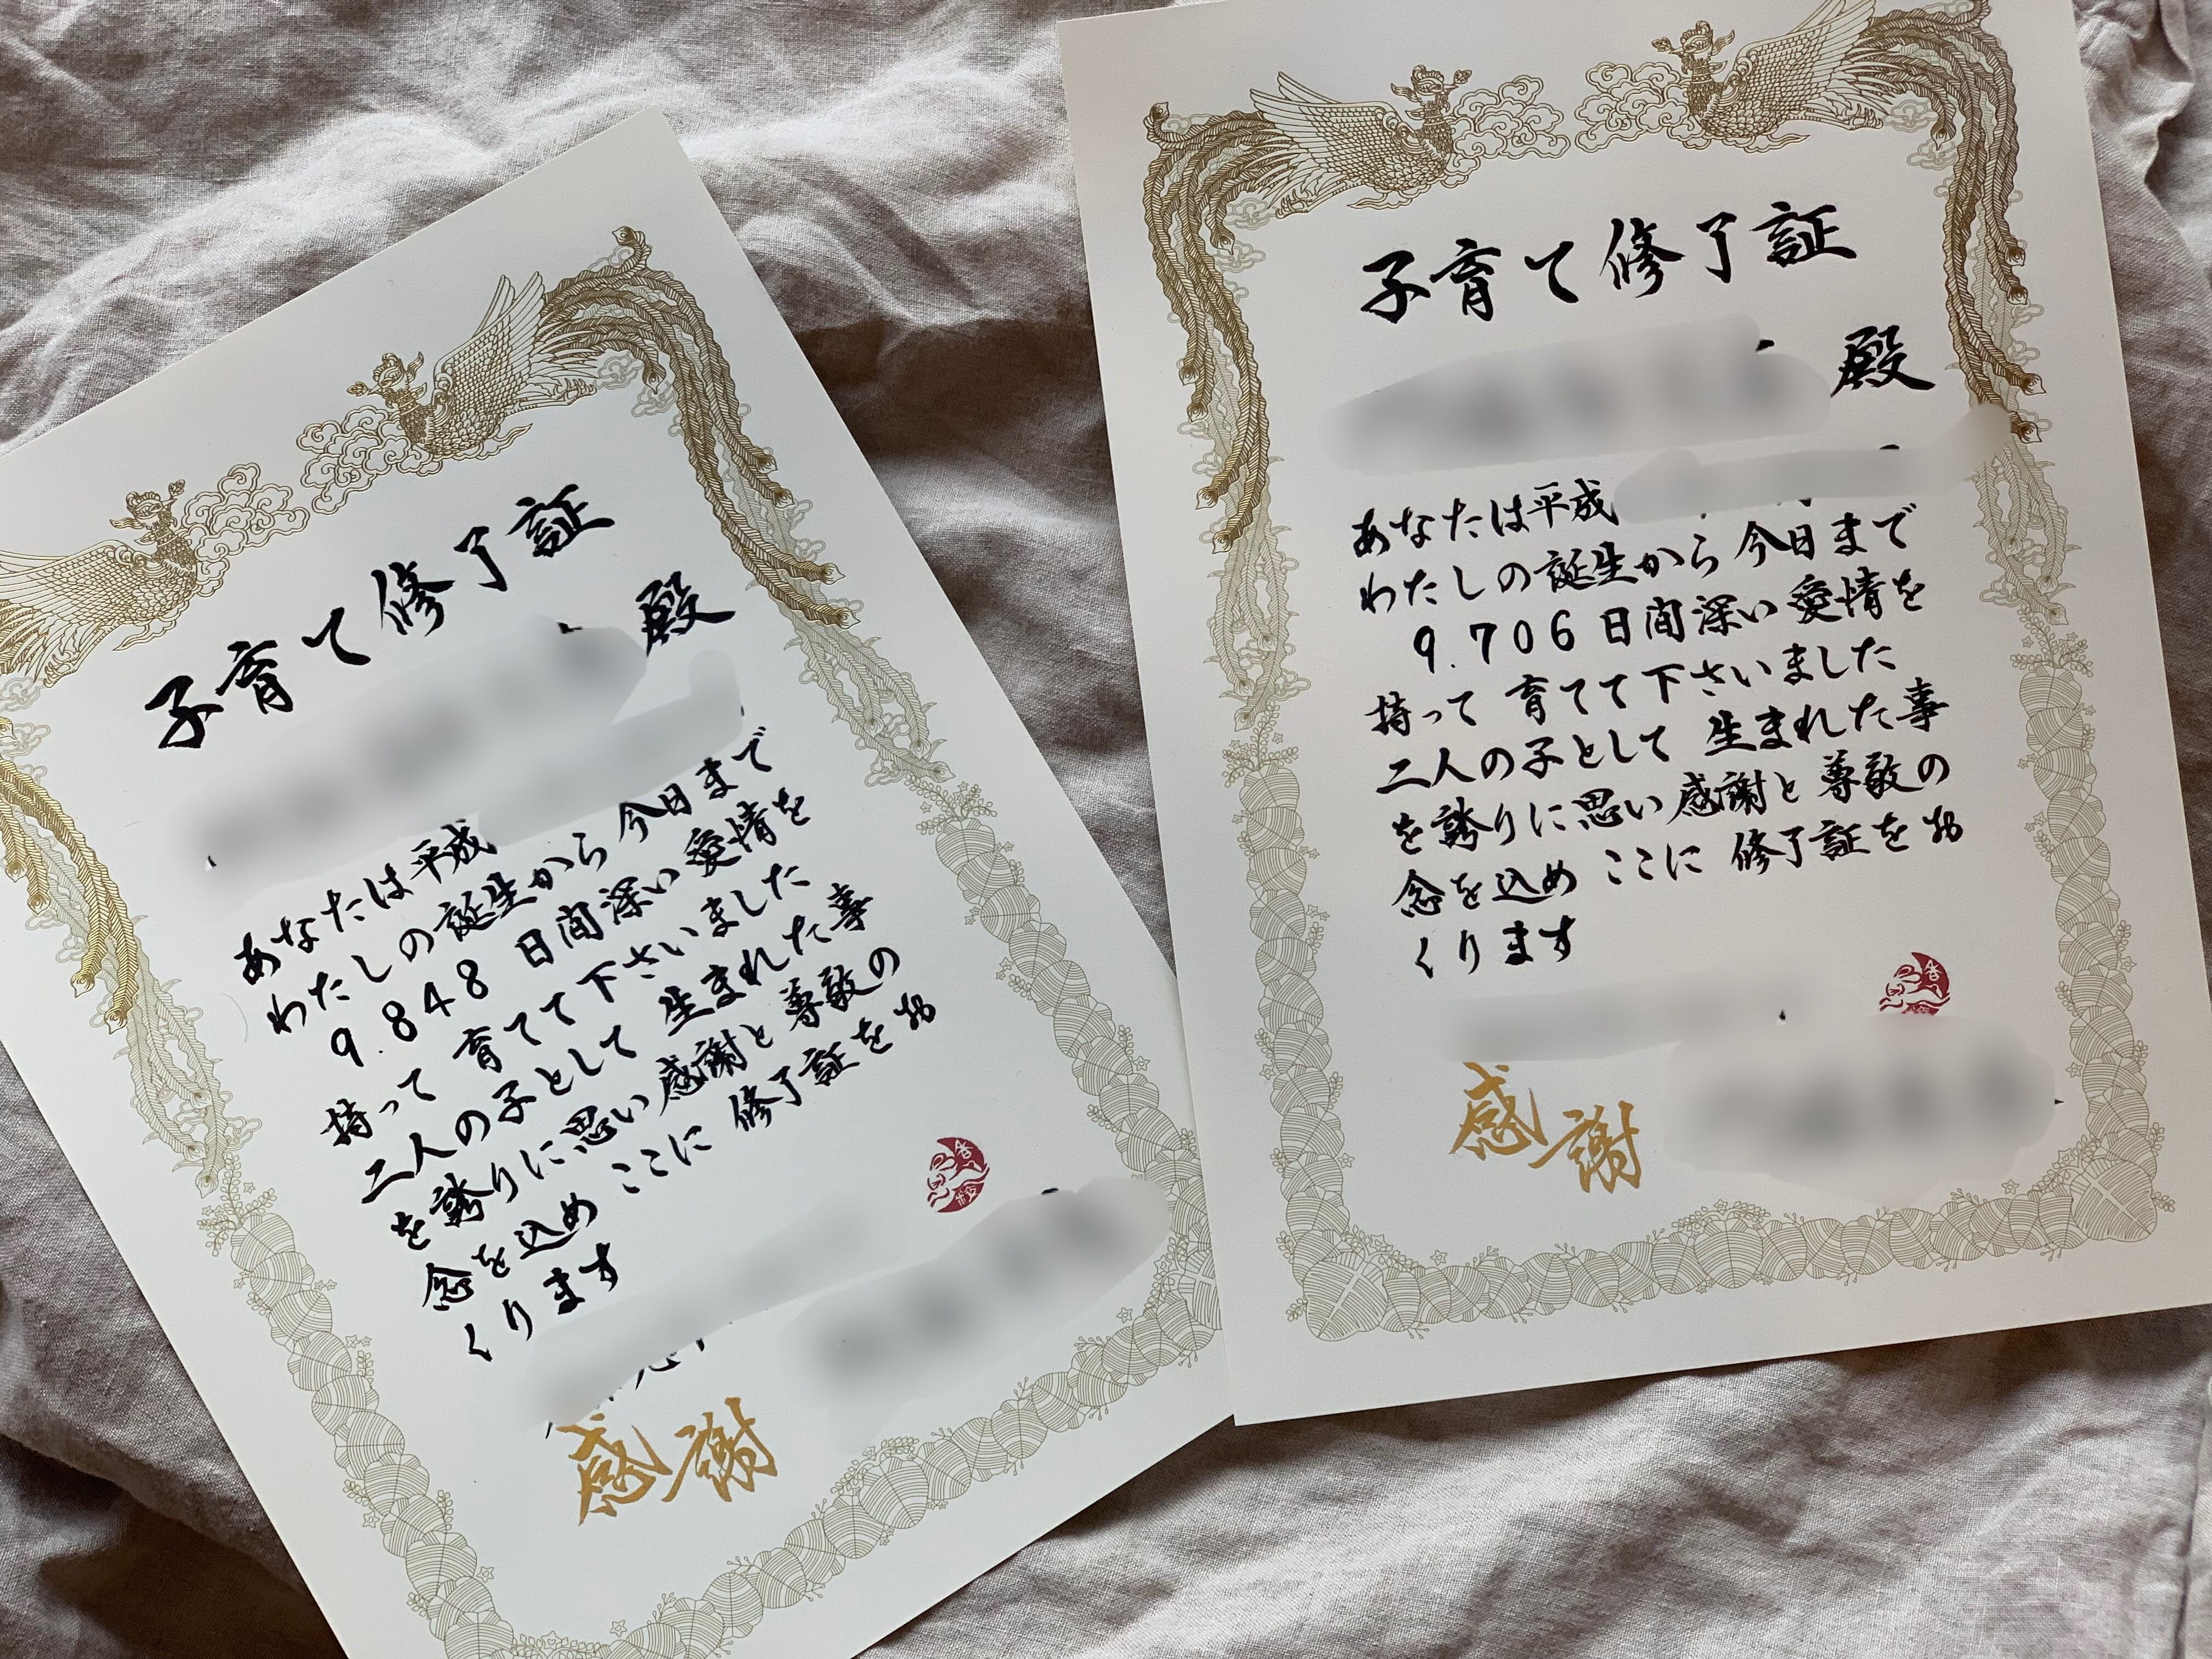 子育て修了証
殿
あなたは平成
わたしの誕生から今日まで
9.848日間深い愛情を
持って育てて下さいました
二人の子として生まれた事
を誇りに思い感謝と尊敬の
念を込めここに修了証をお
くります
感謝
子育て修了証
殿
あなたは平成
わたしの誕生から今日まで
9.706日間深い愛情を
持って育てて下さいました
二人の子として生まれた事
を誇りに思い感謝と尊敬の
念を込めここに修了証をお
くります
感謝